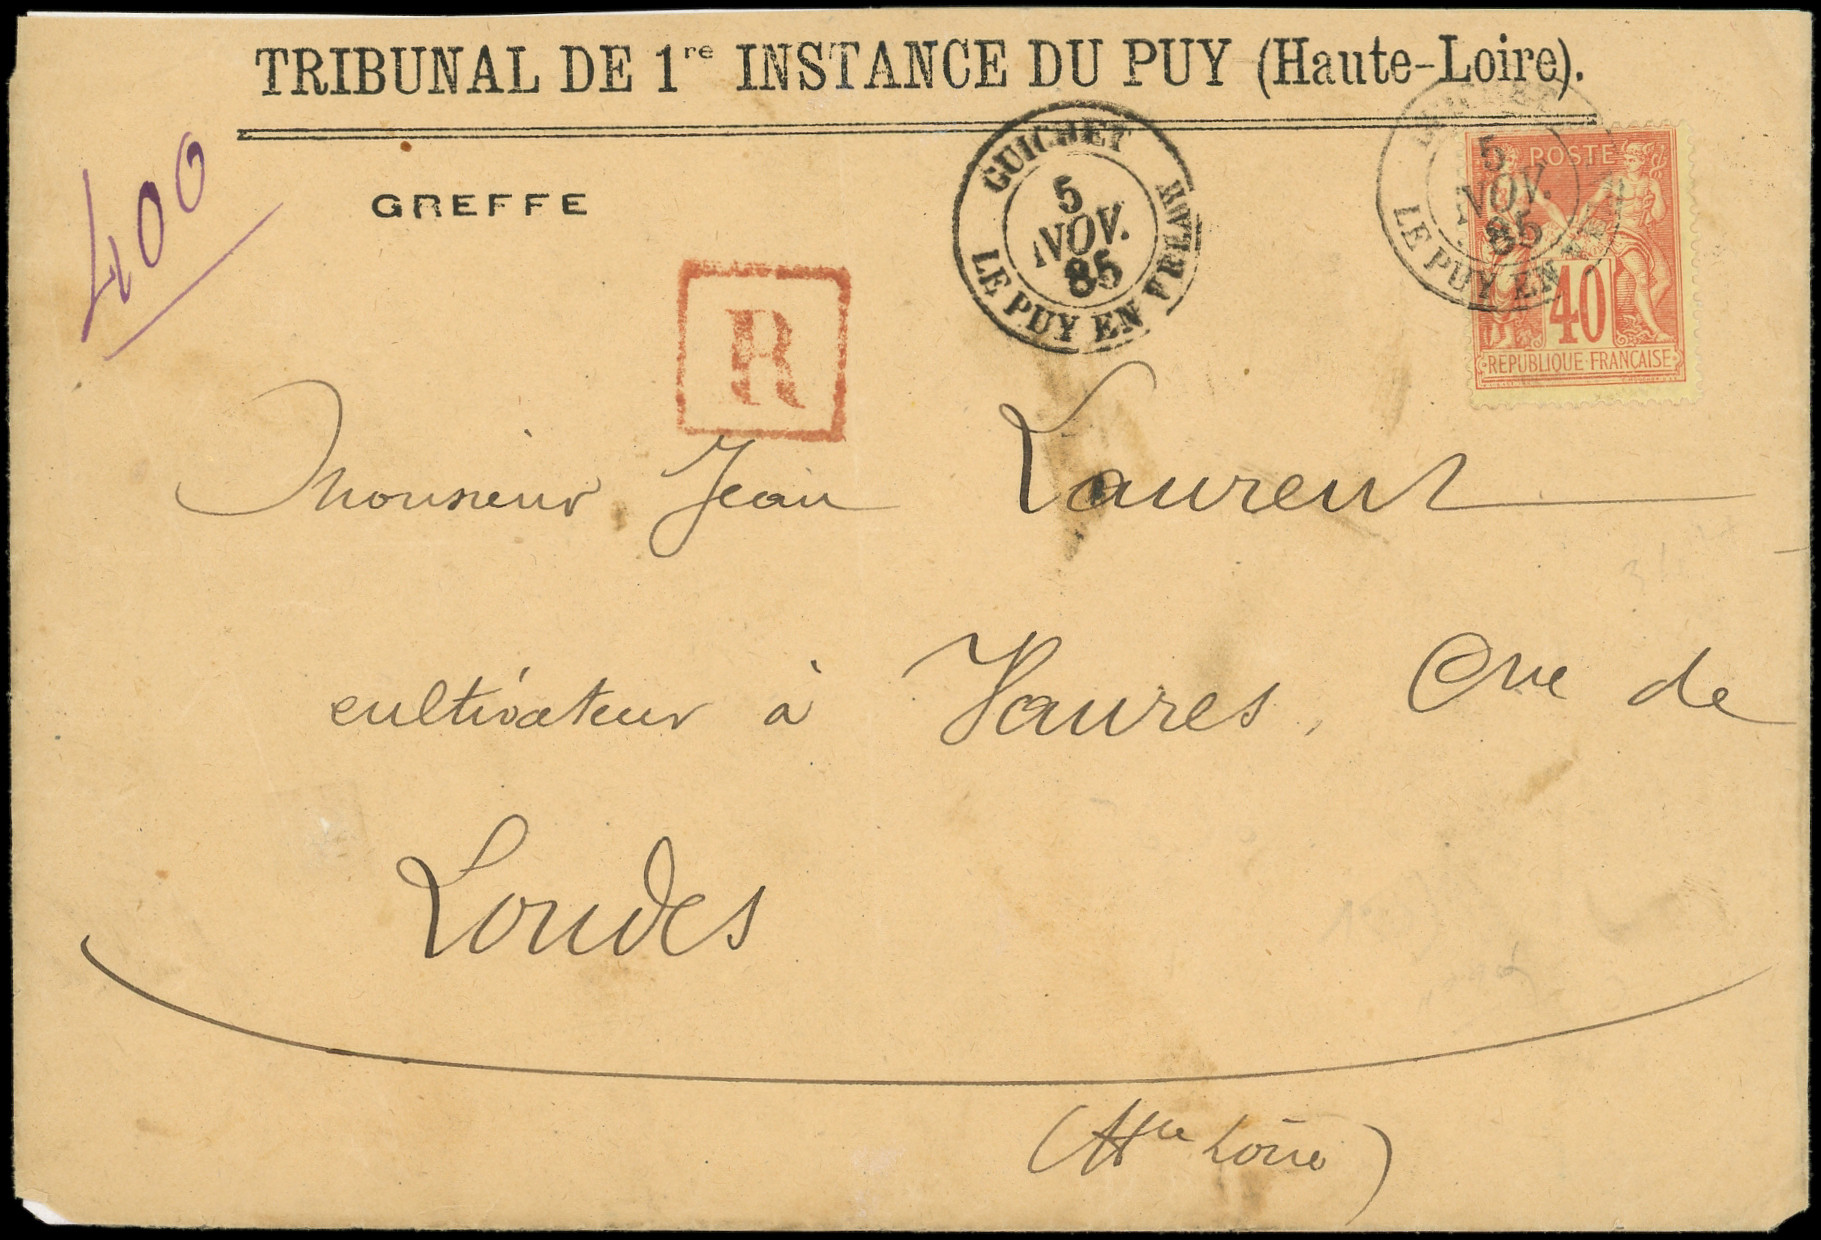 TRIBUNAL DE 1re INSTANCE DU PUY (Haute-Loire).
400
GREFFE
GUICHET
5
NOV.
85
LE PUY EN VELAY
5
NOV.
85
LE PUY EN
POSTE
40
REPUBLIQUE FRANÇAISE
R
Monsieur Jean Laurent
cultivateur à Vaures, Cne de
Loudes
(Hte Loire)